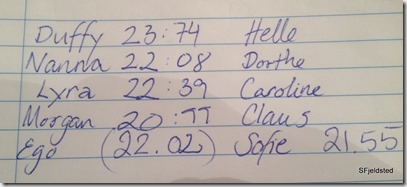 Duffy 23:74 Helle
Nanna 22:08 Dorthe
Lyra 22:39 Caroline
Morgan 20:77 Claus
Ego (22.02) Sofie 21.55
SFjeldsted